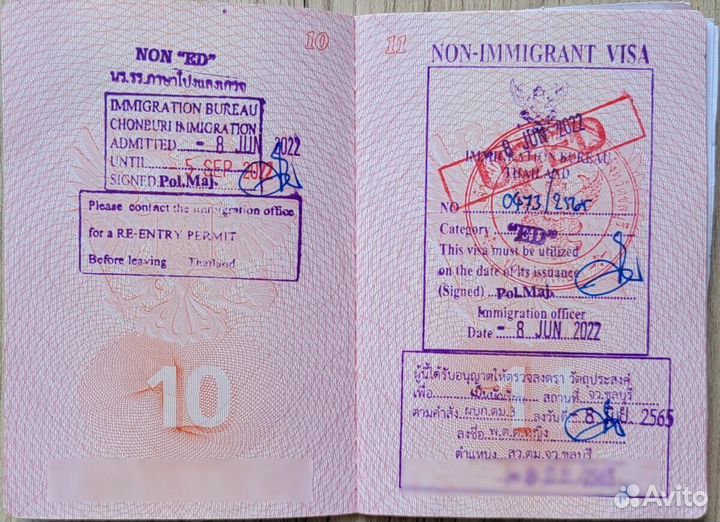 10
NON "ED"
IMMIGRATION BUREAU
CHONBURI IMMIGRATION
ADMITTED - 8 JUN 2022
UNTIL 5 SEP 2022
SIGNED Pol.Maj.
Please contact the immigration office
for a RE-ENTRY PERMIT
Before leaving Thailand
10
11
NON-IMMIGRANT VISA
- 8 JUN 2022
IMMIGRATION BUREAU
THAILAND
USED
NO 0473/2565
Category "ED"
This visa must be utilized
on the date of its issuance
(Signed) Pol.Maj.
Immigration officer
Date - 8 JUN 2022
ผู้นี้ได้รับอนุญาตให้ตรวจลงตรา วัตถุประสงค์
เพื่อ สถานที่ จว.ชลบุรี
ตามคำสั่ง ผบก.ตม.3 ลงวันที่ - 8 2565
ลงชื่อ พ.ต.ต.หญิง
ตำแหน่ง สว.ตม.จว.ชลบุรี
11
Avito